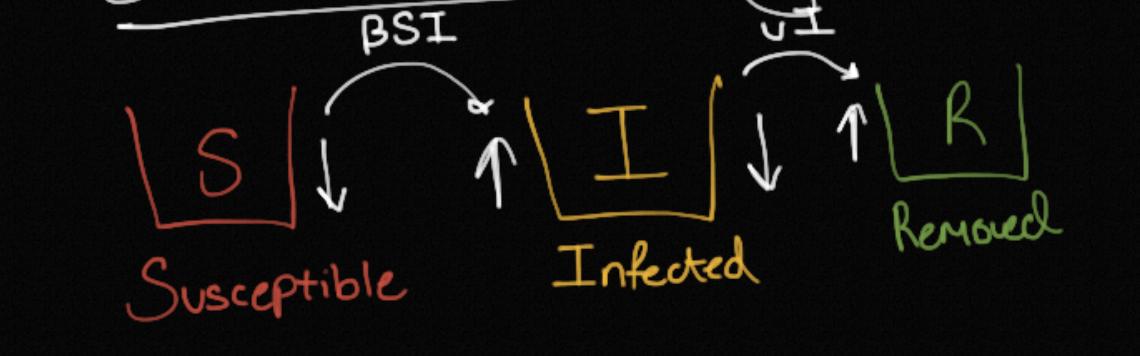 βSI
υI
S
I
R
Susceptible
Infected
Removed